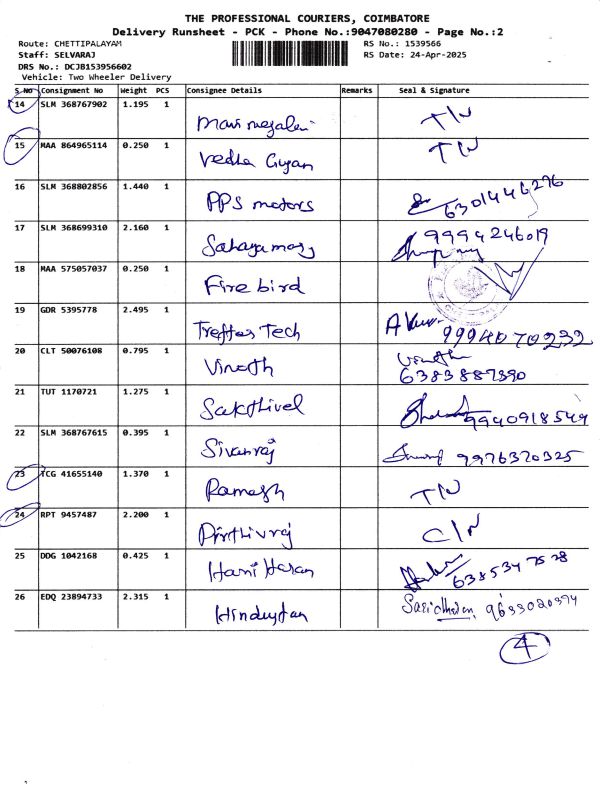 THE PROFESSIONAL COURIERS, COIMBATORE
Delivery Runsheet - PCK - Phone No.:9047080280 - Page No.:2
Route: CHETTIPALAYAM RS No.: 1539566
Staff: SELVARAJ RS Date: 24-Apr-2025
DRS No.: DCJB153956602
Vehicle: Two Wheeler Delivery
S.NO Consignment No Weight PCS Consignee Details Remarks Seal & Signature
14 SLM 368767902 1.195 1 T/N
15 MAA 864965114 0.250 1 Vedha Gyan T/N
16 SLM 368802856 1.440 1 PPS motors 6301446276
17 SLM 368699310 2.160 1 Sahayamary 9994246019
18 MAA 575057037 0.250 1 Fire bird
19 GDR 5395778 2.495 1 Treffos Tech 9994070232
20 CLT 50076108 0.795 1 Vinoth Vinoth 6383887390
21 TUT 1170721 1.275 1 Sakthivel 9940918549
22 SLM 368767615 0.395 1 Sivanraj 9976370325
23 TCG 41655140 1.370 1 Ramesh T/N
24 RPT 9457487 2.200 1 Prithivraj C/N
25 DDG 1042168 0.425 1 Hari Haran 6385347528
26 EDQ 23894733 2.315 1 Hindustan 9633020374
4